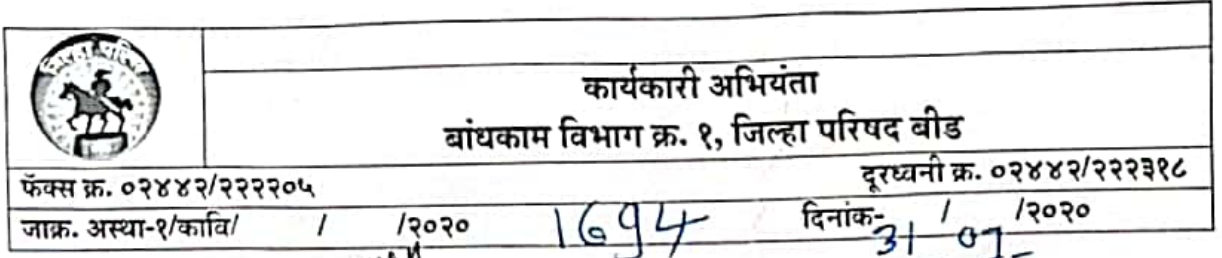 जिल्हा परिषद
कार्यकारी अभियंता
बांधकाम विभाग क्र. १, जिल्हा परिषद बीड
फॅक्स क्र. ०२४४२/२२२२०५ दूरध्वनी क्र. ०२४४२/२२२३१८
जाक्र. अस्था-१/कावि/ / /२०२० 1694 दिनांक- / /२०२०
31 07